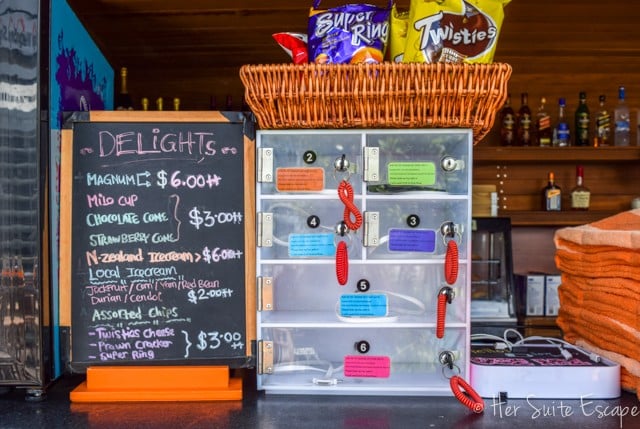 Super Ring
Twisties
DELIGHTS
MAGNUM $6.00++
MILO CUP
CHOCOLATE CONE $3.00++
STRAWBERRY CONE
N-zealand Icecream $6.00++
Local Icecream
Jackfruit/Corn/Yam/Red Bean
Durian/Cendol $2.00++
Assorted Chips
- Twisties Cheese
- Prawn Cracker $3.00++
- Super Ring
2
4
3
5
6
© Her Suite Escape